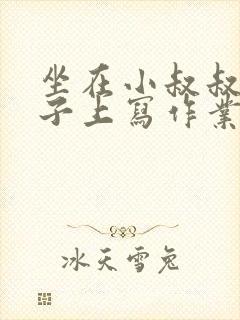 坐在小叔叔
子上寫作業
冰天雪兔